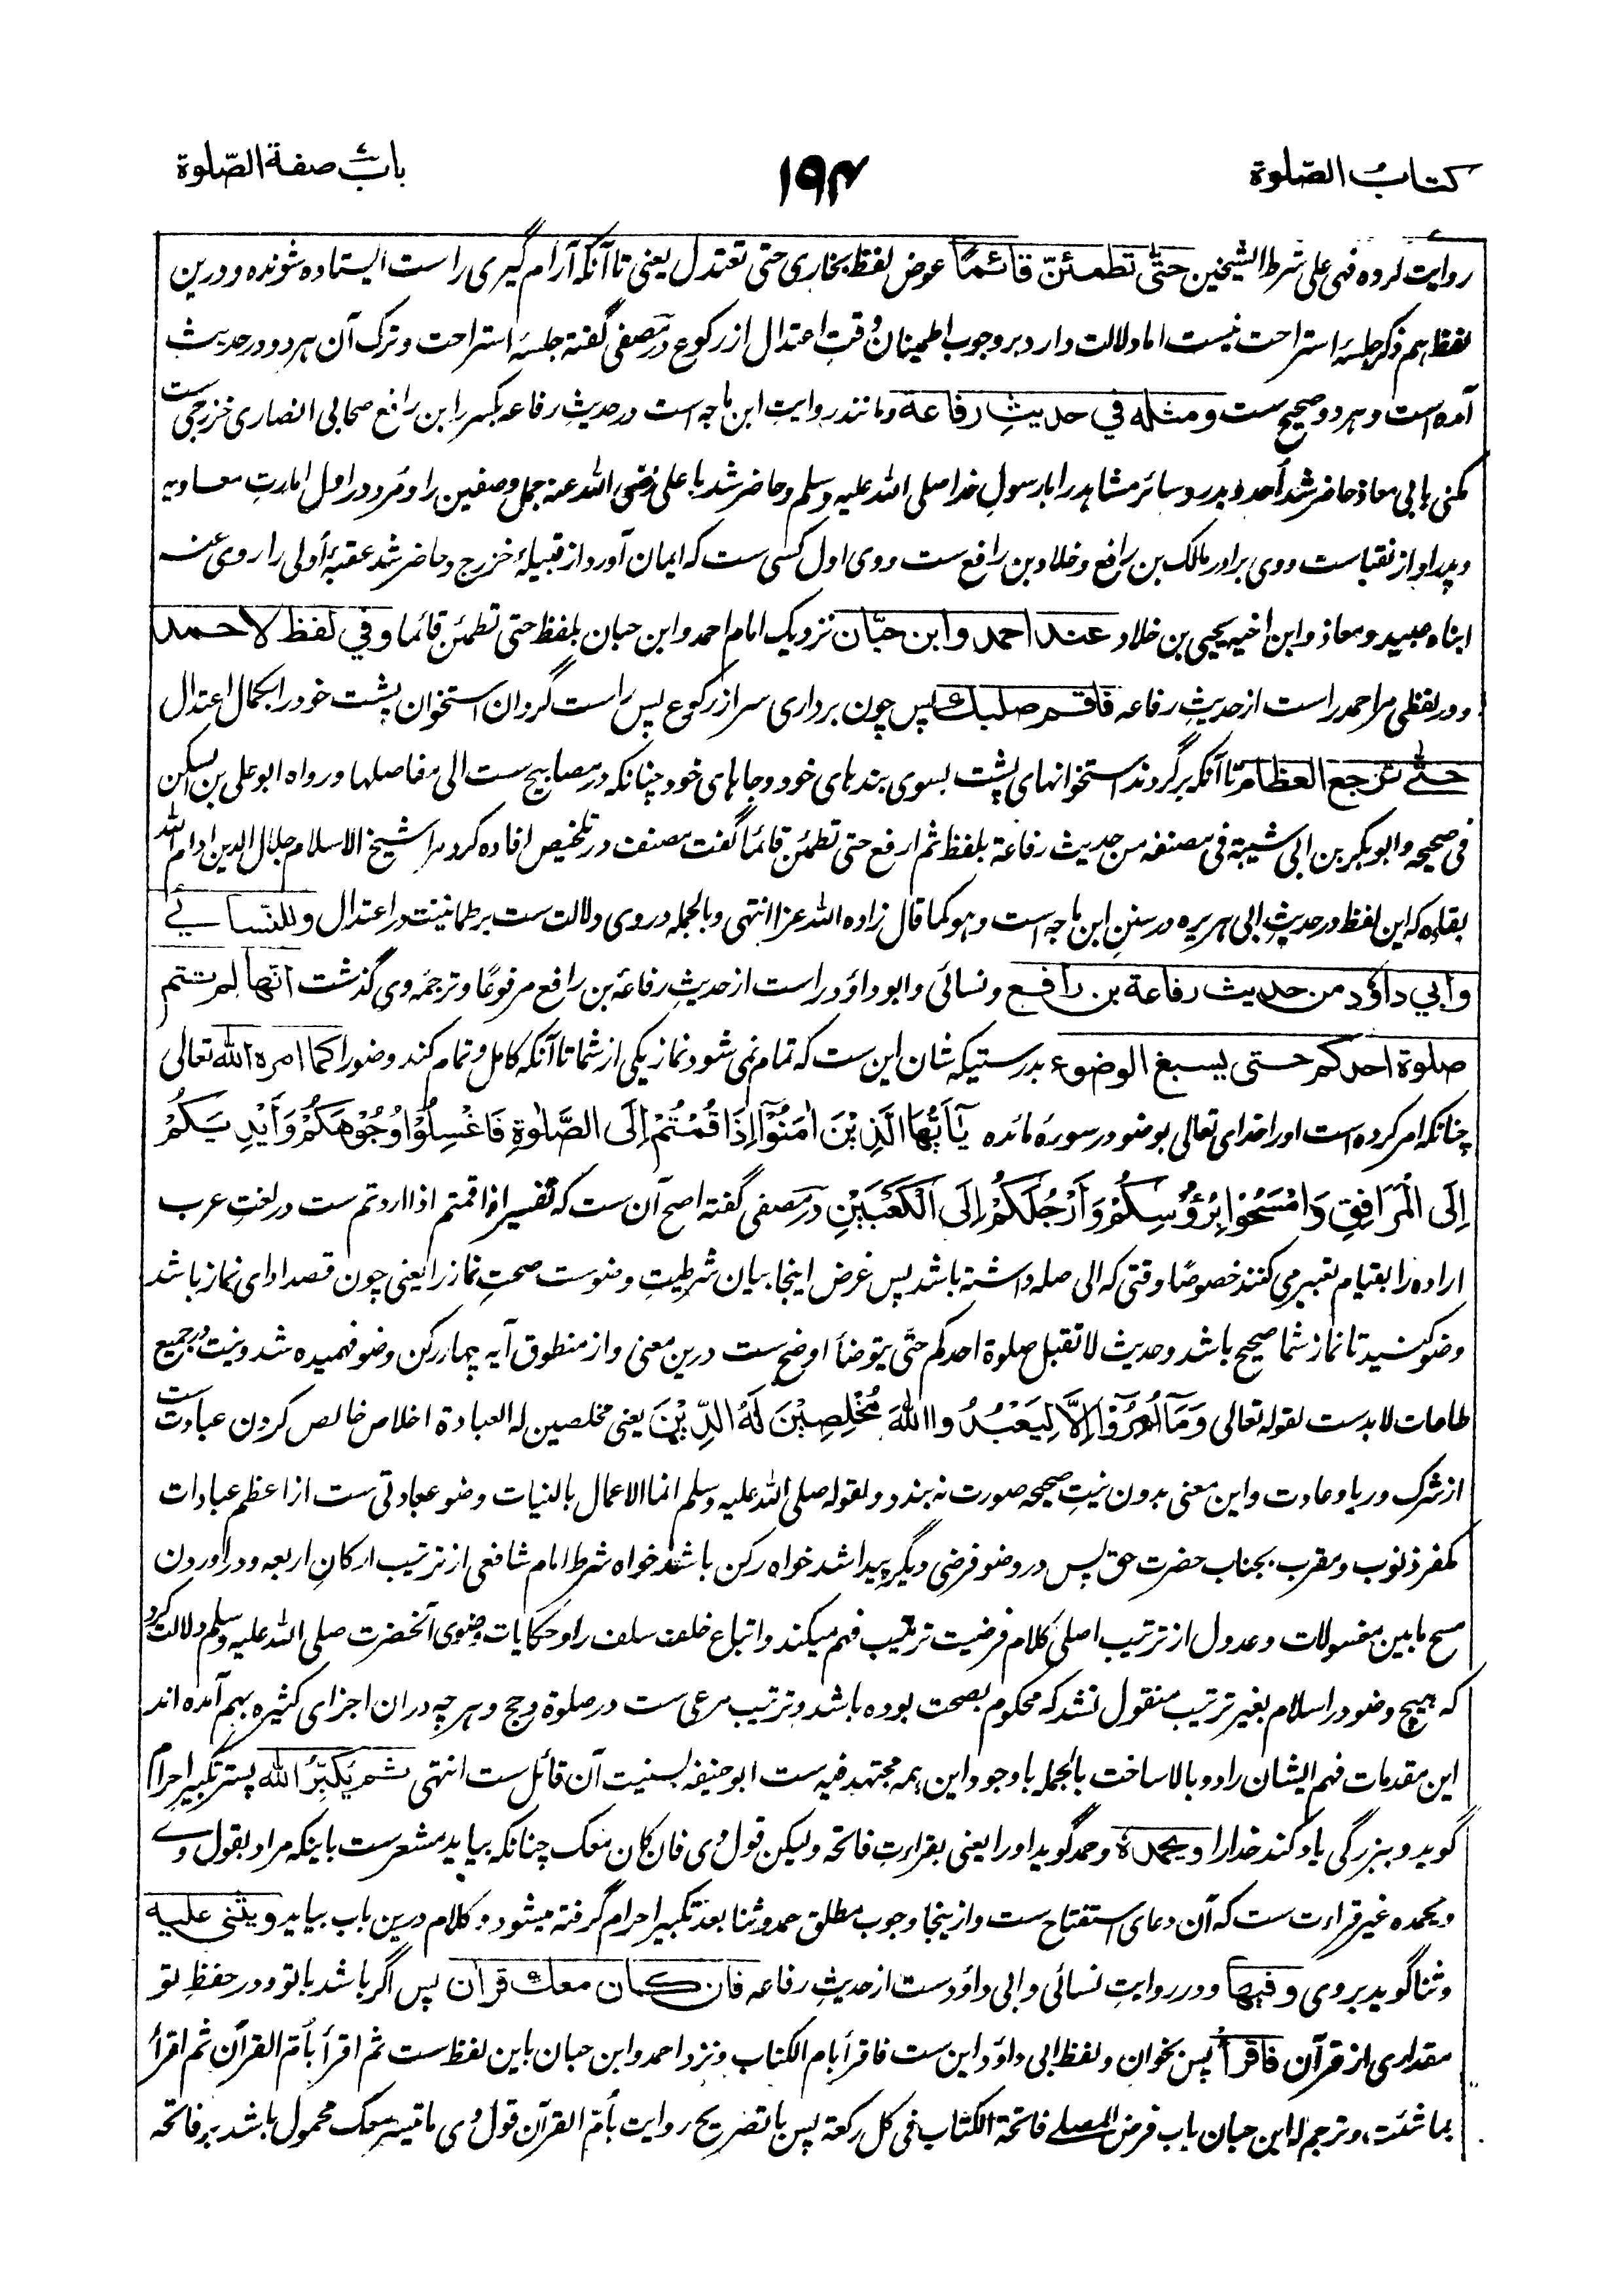 كتاب الصّلوة
۱۹۴
باب صفة الصّلوة
روایت کرده فهی علی شرط الشیخین حتّٰی تطمئنّ قائمًا عوض لفظ بخاری حتی تعتدل یعنی تا آنکه آرام گیری راست ایستاده شونده و درین
لفظ هم ذکر جلسۂ استراحت نیست اما دلالت دارد بر وجوب اطمینان وقت اعتدال از رکوع در مصفی گفته جلسۂ استراحت و ترک آن هر دو در حدیث
آمده است و هر دو صحیح ست ومثله في حديثِ رفاعة و مانند روایتِ ابن ماجه است در حدیثِ رفاعه بکسر را ابن رافع صحابی انصاری خزرجی ست
مکنی بابی معاذ حاضر شد أحد و بدر و سائر مشاهد را با رسولِ خدا صلی الله علیه وسلم و حاضر شد با علی رضی الله عنه جمل و صفین را و مُرد در اول امارتِ معاویه
و پدر او از نقباست و وی برادر مالک بن رافع و خلاد بن رافع ست و وی اول کسی ست که ایمان آورد از قبیلۂ خزرج و حاضر شد عقبۂ أولی را روی عنه
ابناه عبید و معاذ و ابن اخیه یحیی بن خلاد عند احمد وابن حبّان نزدیک امام احمد و ابن حبان بلفظ حتی تطمئن قائما وفي لفظ لاحمد
و در لفظی مر احمد راست از حدیثِ رفاعه فاقم صلبك پس چون برداری سر از رکوع پس راست گردان استخوان پشت خود را بکمال اعتدال
حتّٰى ترجع العظام تا آنکه برگردند استخوانهای پشت بسوی بندهای خود و جاهای خود چنانکه در مصابیح ست الی مفاصلها و رواه ابو علی بن السکن
فی صحیحه و ابوبکر بن ابی شیبة فی مصنفه من حدیث رفاعة بلفظ ثم ارفع حتی تطمئن قائما گفت مصنف در تلخیص افاده کرد مرا شیخ الاسلام جلال الدین ادام الله
بقاءه که این لفظ در حدیثِ ابی هریره در سننِ ابن ماجه است و هو کما قال زاده الله عزا انتهی و بالجمله در وی دلالت ست بر طمانینت در اعتدال وللنّسائي
وأبي داؤد من حديث رفاعة بن رافع و نسائی و ابوداؤد راست از حدیثِ رفاعه بن رافع مرفوعًا و ترجمۂ وی گذشت انّها لم تتم
صلوة احدكم حتى يسبغ الوضوء بدرستیکه شان این ست که تمام نمی شود نماز یکی از شما تا آنکه کامل و تمام کند وضو را كما امره الله تعالى
چنانکه امر کرده است او را خدای تعالی بوضو در سورۂ مائده يَآ أَيُّهَا الَّذِيْنَ اٰمَنُوْٓا اِذَا قُمْتُمْ اِلَى الصَّلٰوةِ فَاغْسِلُوْا وُجُوْهَكُمْ وَأَيْدِيَكُمْ
اِلَى الْمَرَافِقِ وَامْسَحُوْا بِرُؤُسِكُمْ وَأَرْجُلَكُمْ اِلَى الْكَعْبَيْنِ در مصفی گفته اصح آن ست که تفسیر اذا قمتم اذا اردتم ست در لغتِ عرب
اراده را بقیام تعبیر می کنند خصوصًا وقتی که الی صله داشته باشد پس غرض اینجا بیان شرطیتِ وضوست صحتِ نماز را یعنی چون قصد ادای نماز باشد
وضو کنید تا نماز شما صحیح باشد و حدیث لا تقبل صلوة احدکم حتّی یتوضأ اوضح ست درین معنی و از منطوق آیه چهار رکن وضو فهمیده شد و نیت در جمیع
طاعات لابدست لقوله تعالی وَمَآ اُمِرُوْٓا اِلَّا لِيَعْبُدُوا اللّٰهَ مُخْلِصِيْنَ لَهُ الدِّيْنَ یعنی مخلصین له العبادة اخلاص خالص کردن عبادت ست
از شرک و ریا و عادت و این معنی بدون نیتِ صحیحه صورت نه بندد و لقوله صلی الله علیه وسلم انما الاعمال بالنیات وضو عبادتی ست از اعظم عبادات
مکفر ذنوب و مقرب بجناب حضرت حق پس در وضو فرضی دیگر پیدا شد خواه رکن باشد خواه شرط امام شافعی از ترتیب ارکانِ اربعه و در آوردن
مسح مابین مغسولات و عدول از ترتیب اصلی کلام فرضیت ترتیب فهم میکند و اتباع خلف سلف را و حکایات وضوی آنحضرت صلی الله علیه وسلم دلالت کرد
که هیچ وضو در اسلام بغیر ترتیب منقول نشد که محکوم بصحت بوده باشد و ترتیب مرعی ست در صلوة و حج و هر چه در ان اجزای کثیره بهم آمده اند
این مقدمات فهم ایشان را دو بالا ساخت بالجمله با وجود این همه مجتهد فیه ست ابو حنیفه بسنیت آن قائل ست انتهی ثم يُكَبِّرُ الله پستر تکبیر احرام
گوید و ببزرگی یاد کند خدا را ويحمدهٗ و حمد گوید او را یعنی بقراءتِ فاتحه ولیکن قولِ وی فان کان معک چنانکه بیاید مشعرست باینکه مراد بقول وے
و یحمده غیر قراءت ست که آن دعای استفتاح ست و ازینجا وجوب مطلق حمد و ثنا بعد تکبیر احرام گرفته میشود و کلام درین باب بیاید ويثني عليه
و ثنا گوید بر وی وفيها و در روایتِ نسائی و ابی داؤدست از حدیثِ رفاعه فان كان معك قرآن پس اگر باشد با تو و در حفظِ تو
مقداری از قرآن فاقرأ پس بخوان و لفظِ ابی داؤد این ست فاقرأ بام الکتاب و نزد احمد و ابن حبان باین لفظ ست ثم اقرأ بأم القرآن ثم اقرأ
بما شئت، و ترجم له ابن حبان باب فرض المصلے فاتحة الکتاب فی کل رکعة پس با تصریح روایت بأمّ القرآن قولِ وی ما تیسر معک محمول باشد بر فاتحه